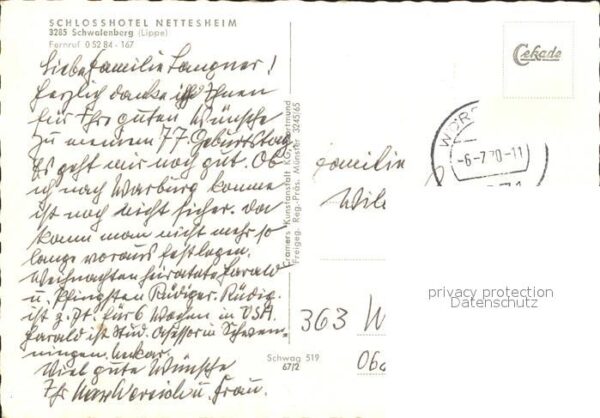 SCHLOSSHOTEL NETTESHEIM
3285 Schwalenberg (Lippe)
Fernruf 0 52 84 - 167
Cekade
Liebe Familie Langner!
Herzlich danke ich Ihnen
für Ihre guten Wünsche
zu meinem 77. Geburtstag
Es geht mir noch gut. Ob
ich nach Warburg komme
ist noch nicht sicher. Da
kann man nicht mehr so
lange voraus festlegen.
Weihnachten heiratete Harald
u. Pfingsten Rüdiger. Rüdig.
ist z. Zt. für 6 Wochen in USA.
Harald ist Stud. Assessor in Schwen-
ningen. Neckar.
Viel gute Wünsche
Ihr Max u. Frau.
Cramers Kunstanstalt KG, Dortmund
Freigeg. Reg.-Präs. Münster 3245/65
Schwag 519
67/2
-6-7.70-11
Familie
Wil
363 W
06
privacy protection
Datenschutz